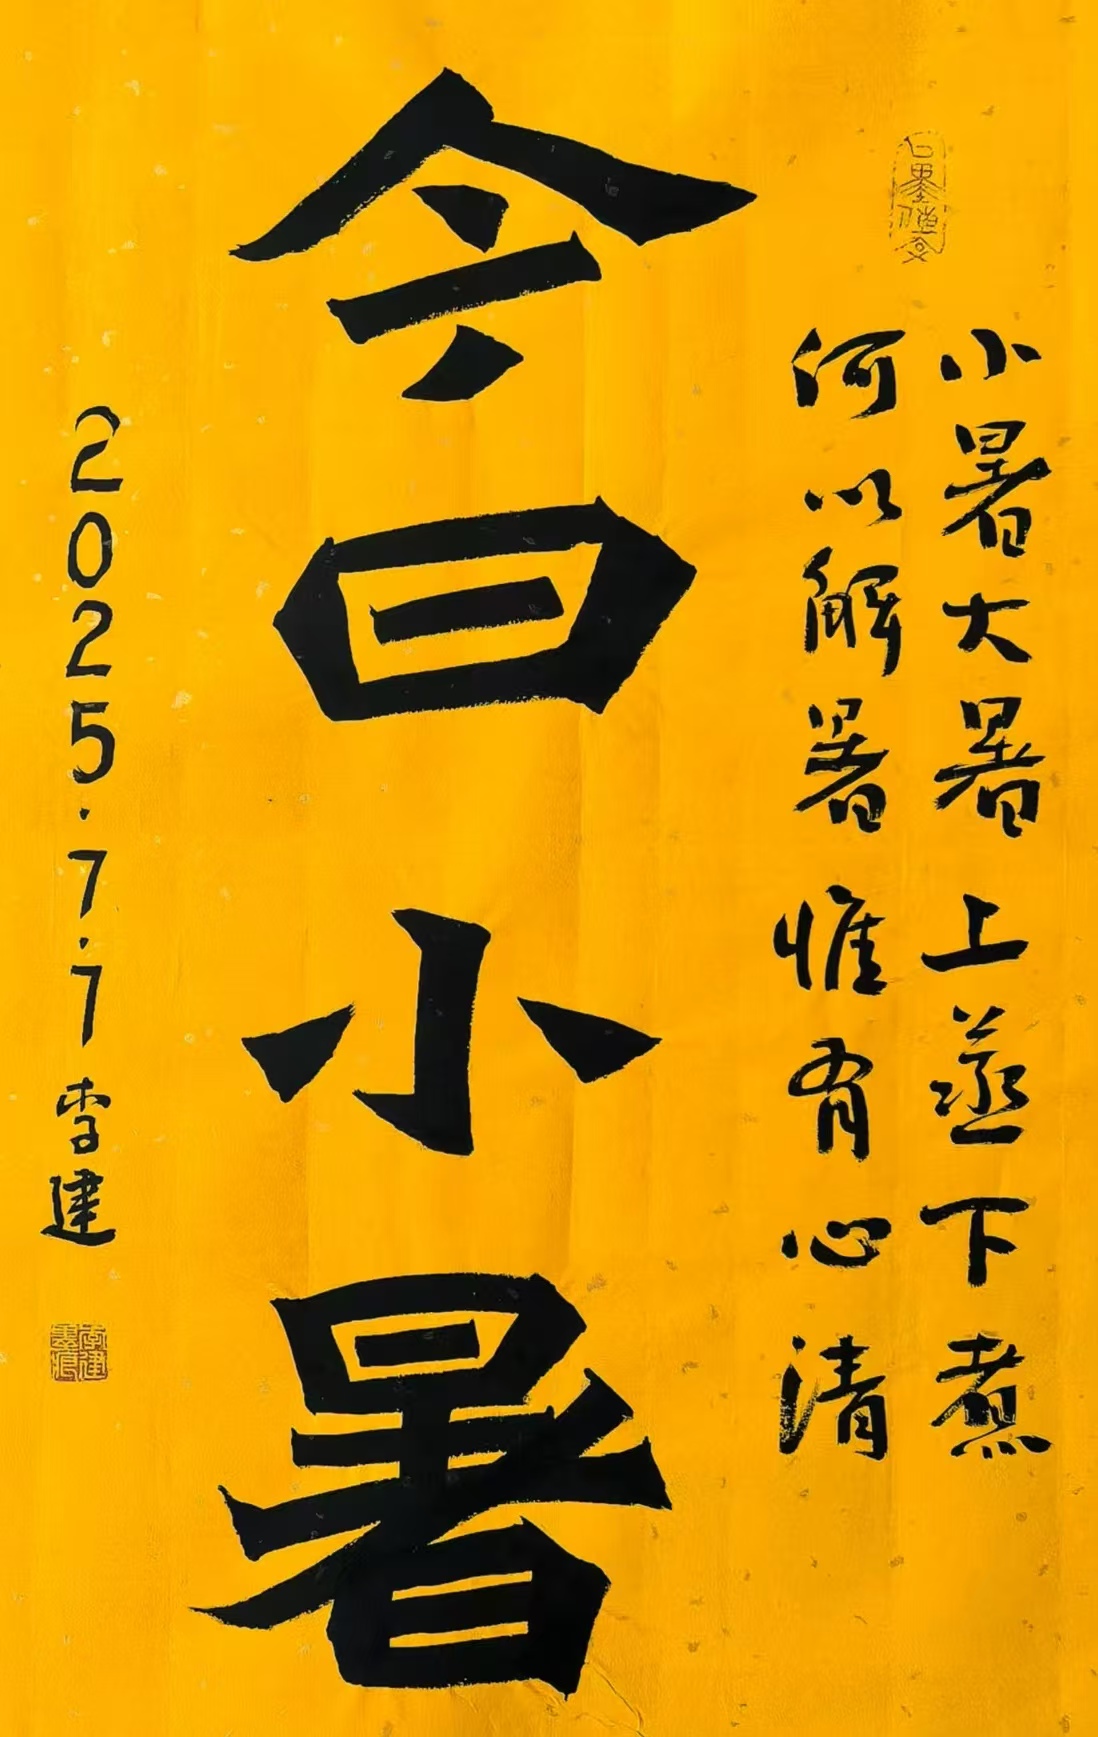 小暑大暑上蒸下煮
何以解暑惟有心清
今日小暑
2025.7.7李建